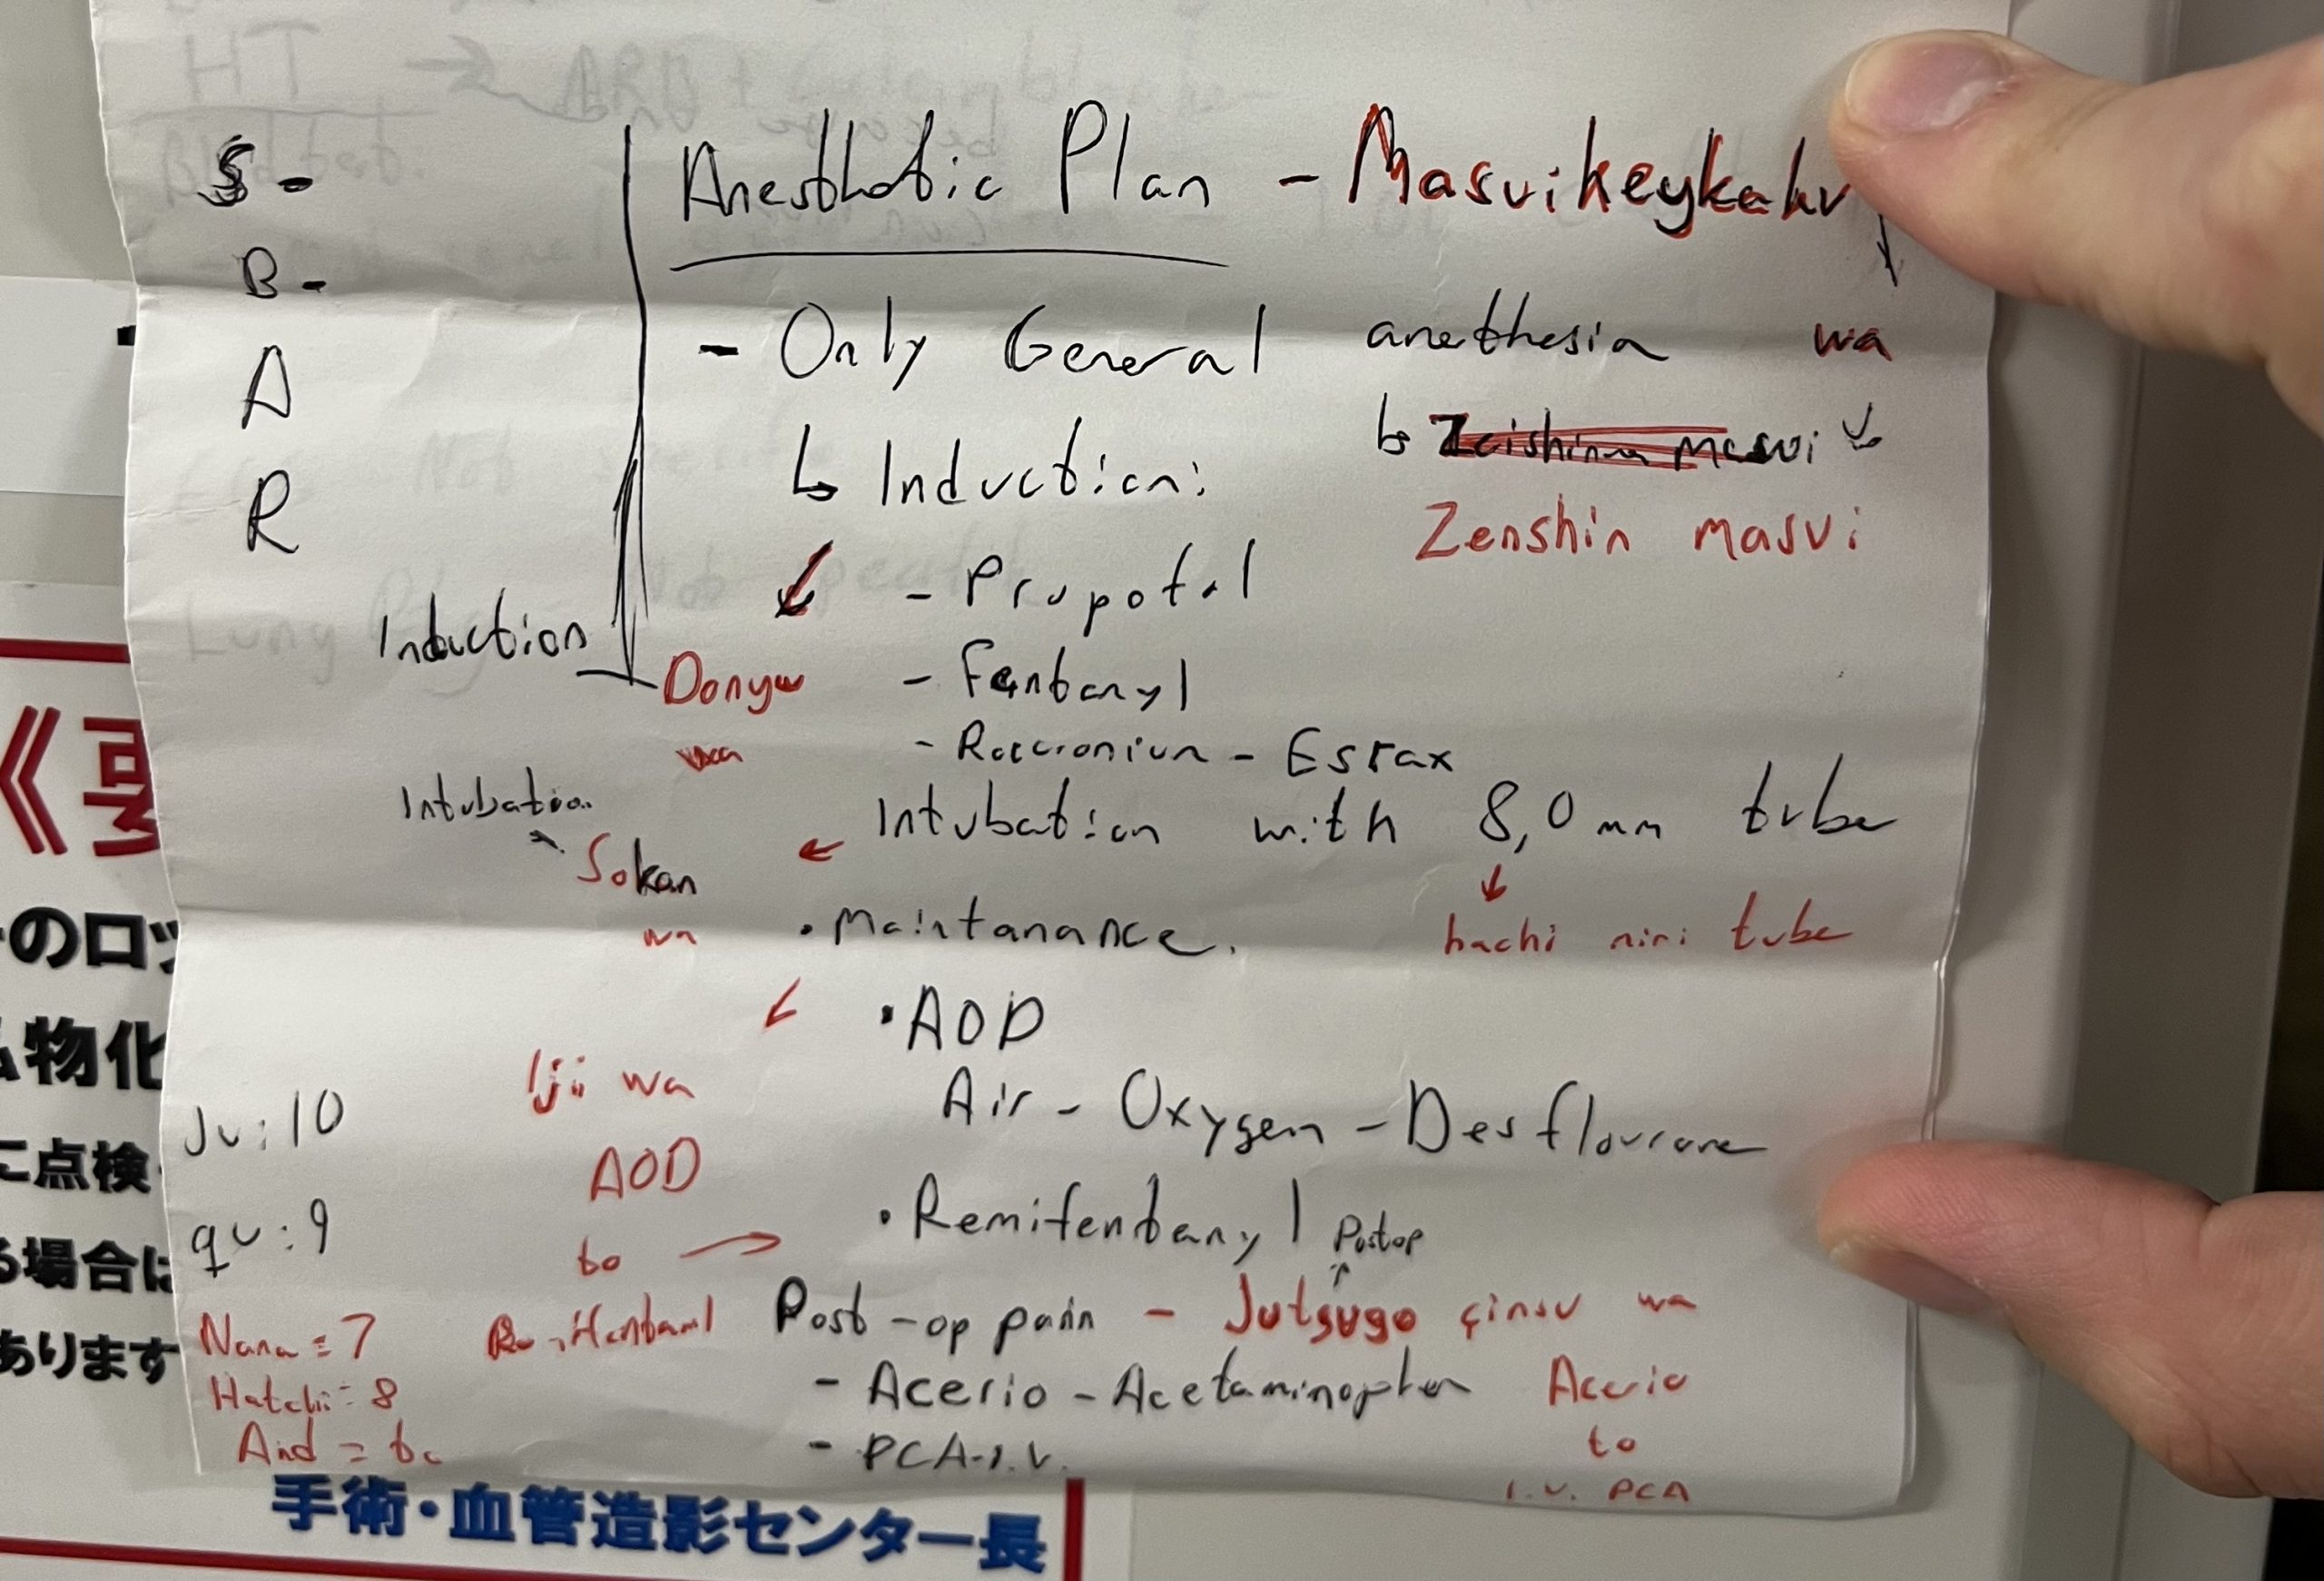 S -
B -
A
R
Anesthetic Plan - Masvikeykakv
- Only General anethesia wa
↳ Induction:
Zenshin masvi
- Propofol
Induction
Donyu
wa
- Fentanyl
- Roccroniun - Esrax
Intubation
Intubation with 8,0 mm tube
Sokan
wa
hachi miri tube
• Maintanance.
• AOD
Air - Oxygen - Desflourane
Iji wa
AOD
to
Remifentanyl
• Remifentanyl
Postop
Post-op pain - Jutsugo çinsu wa
- Acerio - Acetaminophen
- PCA-I.V.
Acerio
to
I.V. PCA
Ju: 10
qu: 9
Nana = 7
Hatchi = 8
And = to
のロッ
物化
に点検
る場合は
あります
手術・血管造影センター長